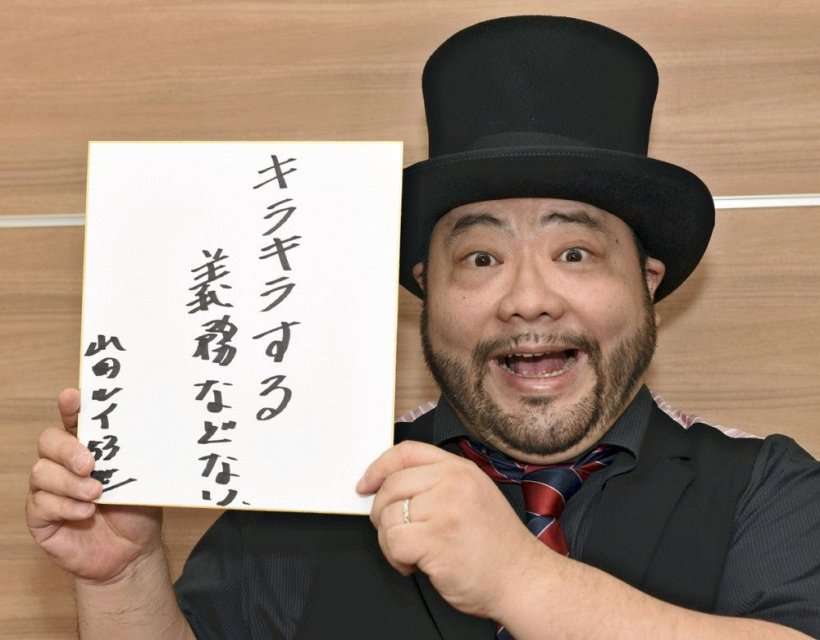 キラキラする
義務などない
山田ルイ53世